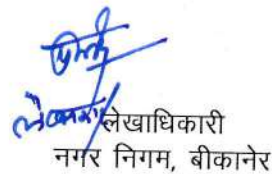 लेखाधिकारी
नगर निगम, बीकानेर